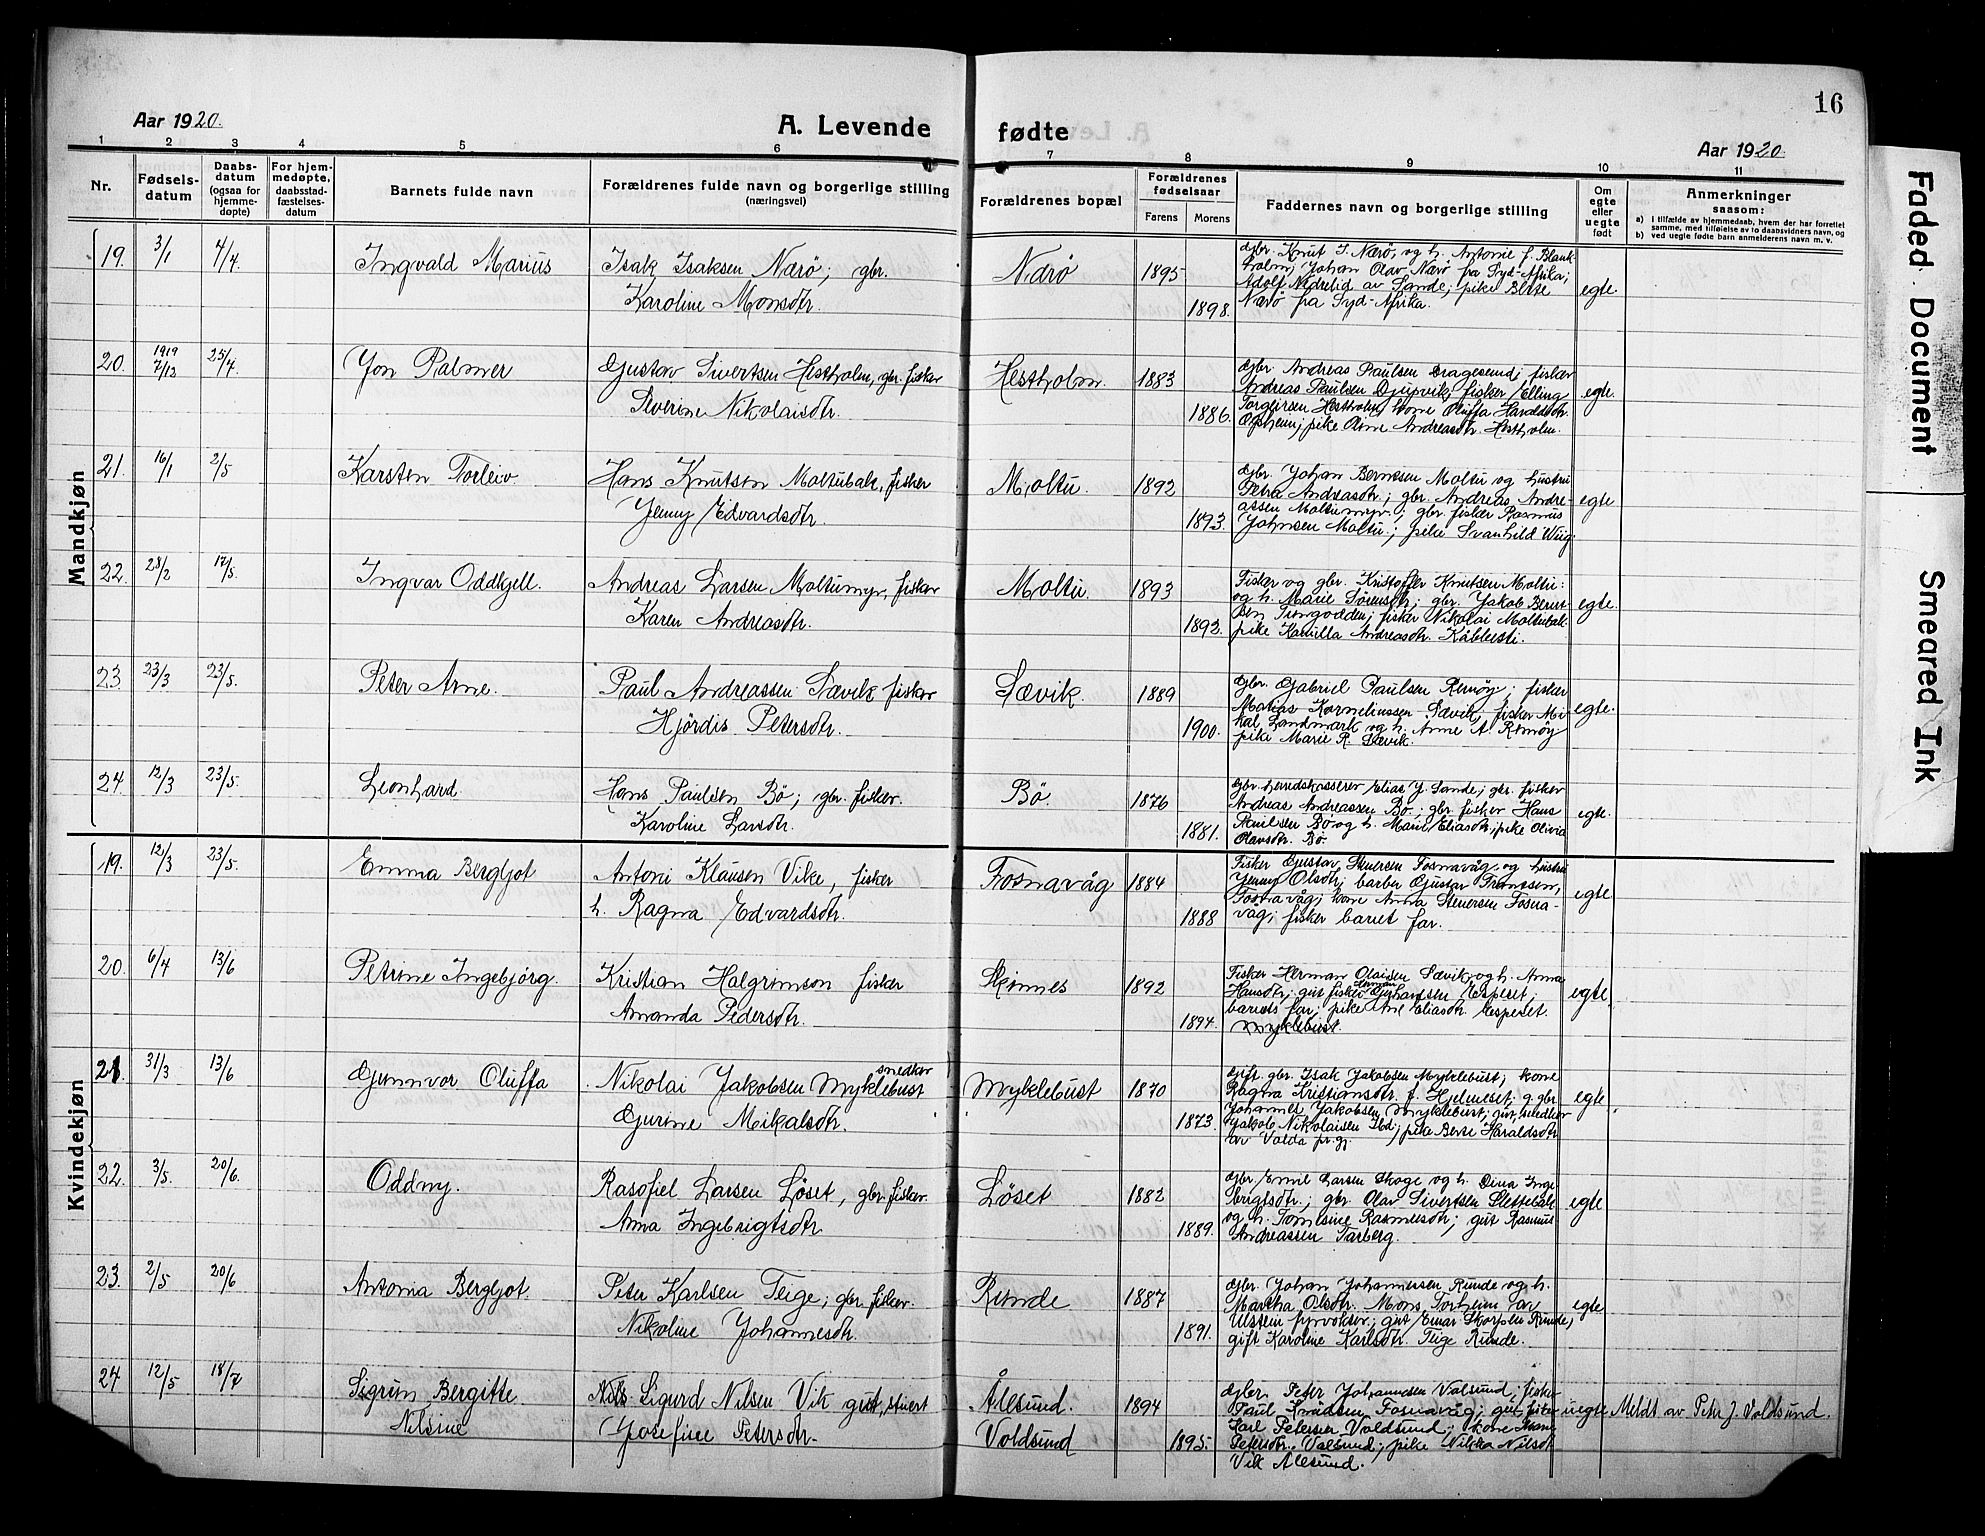 16
Aar 1920.
A. Levende fødte
Aar 1920.
1 2 3 4 5 6 7 8 9 10 11
Nr.
Fødsels-
datum
Daabs-
datum
(ogsaa for
hjemme-
døpte)
For hjem-
medøpte,
daabsstad-
fæstelses-
datum
Barnets fulde navn
Forældrenes fulde navn og borgerlige stilling
(næringsvei)
Forældrenes bopæl
Forældrenes
fødselsaar
Farens Morens
Faddernes navn og borgerlige stilling
Om
egte
eller
uegte
født
Anmerkninger
saasom:
a) I tilfælde av hjemmedaab, hvem der har forrettet
samme, med tilføielse av to daabsvidners navn, og
b) ved uegte fødte barn anmelderens navn m. v.
Mandkjøn
19. 3/1 4/4 Ingvald Marius
Isak Isaksen Nærø; gbr.
Karoline Monsdtr.
Nærø 1895 1898.
Gbr. Knut I. Nærø, og h. Antonie f. Blank-
holm; Johan Olav Nærø fra Syd-Afrika;
Adolf Nedrelid av Sande; pike Berte
Nærø fra Syd-Afrika.
egte
20. 1919 7/12 25/4 Jon Palmer
Gustav Sivertsen Hestholm, gbr. fisker
Severine Nikolaisdtr.
Hestholm. 1883 1886.
Gbr. Andreas Paulsen Dragesund; fisker
Andreas Paulsen Djupvik; fisker Elling
Torgeirsen Hestholm; kone Oluffa Haraldsdtr.
Opsheim; pike Oline Andreasdtr. Hestholm.
egte.
21. 16/1 2/5 Karsten Torleiv
Hans Knutsen Moltubak, fisker
Jenny Edvardsdtr.
Moltu. 1892 1893.
Gbr. Johan Berntsen Moltu og hustru
Petra Andreasdtr.; gbr. Andreas Andre-
assen Moltumyr.; gbr. fisker Rasmus
Johnsen Moltu.; pike Svanhild Wiig.
egte
22. 28/2 17/5. Ingvar Oddkjell.
Andreas Larsen Moltumyr, fisker
Karen Andreasdtr.
Moltu 1893 1892.
Fisker og gbr. Kristoffer Knutsen Moltu:
og h. Marie Sørensdtr; gbr. Jakob Bernt-
sen ; fisker Nikolai Moltubak
pike Kamilla Andreasdtr.
egte.
23. 23/3 23/5. Peter Arne.
Paul Andreassen Sævik fisker
Hjördis Petersdtr.
Sævik. 1889 1900.
Gbr. Gabriel Paulsen Remøy; fisker
Matias Korneliussen Sævik, fisker Mi-
kal Landmark og h. Anne A. Remøy
pike Marie R. Sævik.
egte.
24. 12/3 23/5. Leonhard.
Hans Paulsen Bö; gbr. fisker.
Karoline Larsdtr.
Bö. 1876 1881.
Gbr. herredskasserer Elias J. Sande; gbr. fisker
Andreas Andreassen Bø; gbr. fisker Hans
Paulsen Bø og h. Marie Eliasdtr; pike Olivia
Olavsdtr. Bø.
egte.
Kvindekjøn
19. 12/3 23/5. Emma Bergljot
Antoni Klausen Vike, fisker
h. Ragna Edvardsdtr.
Fosnavåg 1884 1888
Fisker Gustav Stenersen Fosnavåg og hustru
Jenny Olsdtr; barber Gustav Frantsen,
Fosnavåg; kone Anna Stenersen Fosna-
våg; fisker barnet far.
egte
20. 6/4 13/6 Petrine Ingebjörg.
Kristian Halgrimson fisker
Amanda Pedersdtr.
Skinnes 1892 1894.
Fisker Herman Olaisen Sævik og h. Anna
Hansdtr; gut fisker Herman Gerhardsen Espeset;
barnets far; pike Ane Eliasdtr. Espeset.
Myklebust.
egte
21. 31/3 13/6 Gunnvor Oluffa
Nikolai Jakobsen Myklebust snedker
Gurine Mikalsdtr.
Myklebust 1870 1873.
Gift gbr. Isak Jakobsen Myklebust; kone
Ragna Kristiansdtr. f. Hjelmeset; g. gbr.
Johannes Jakobsen Myklebust; gut, snedker
Jakob Nikolaisen Ibd; pike Berte Haraldsdtr
av Volda pr.gj.
egte
22. 3/5. 20/6. Oddny.
Rasofiel Larsen Løset, gbr. fisker.
Anna Ingebrigtsdtr
Løset 1882 1889.
Gbr. Emil Larsen Skoge og h. Dina Inge-
brigtsdtr.; gbr. Olav Sivertsen Slettebak
og h. Tomesine Rasmusdtr; gut Rasmus
Andreassen Tarberg.
egte
23. 2/5 20/6 Antonia Bergljot.
Peter Karlsen Teige; gbr. fisker.
Nikoline Johannesdtr.
Runde 1887 1891.
Gbr. Johan Johannessen Runde og h.
Martha Olsdtr. Mons Torheim av
Ulstein fyrvokter; gut Einar Skorpen Runde;
gift Karoline Karlsdtr. Teige Runde.
egte
24 12/5 18/7 Sigrun Bergitte
Nilsine
Nils Sigurd Nilsen Vik gut, stuert
Josefine Petersdtr.
Ålesund.
Voldsund 1894 1895.
Gbr. Peter Johannesen Valsund; fisker
Paul Knudsen Fosnavåg; gut fisker
Karl Petersen Voldsund; kone
Petersdtr. Valsund; pike Nikka Nilsdtr
Vik Ålesund.
uegte Meldt av Peter J. Voldsund.
Faded Document
Smeared Ink